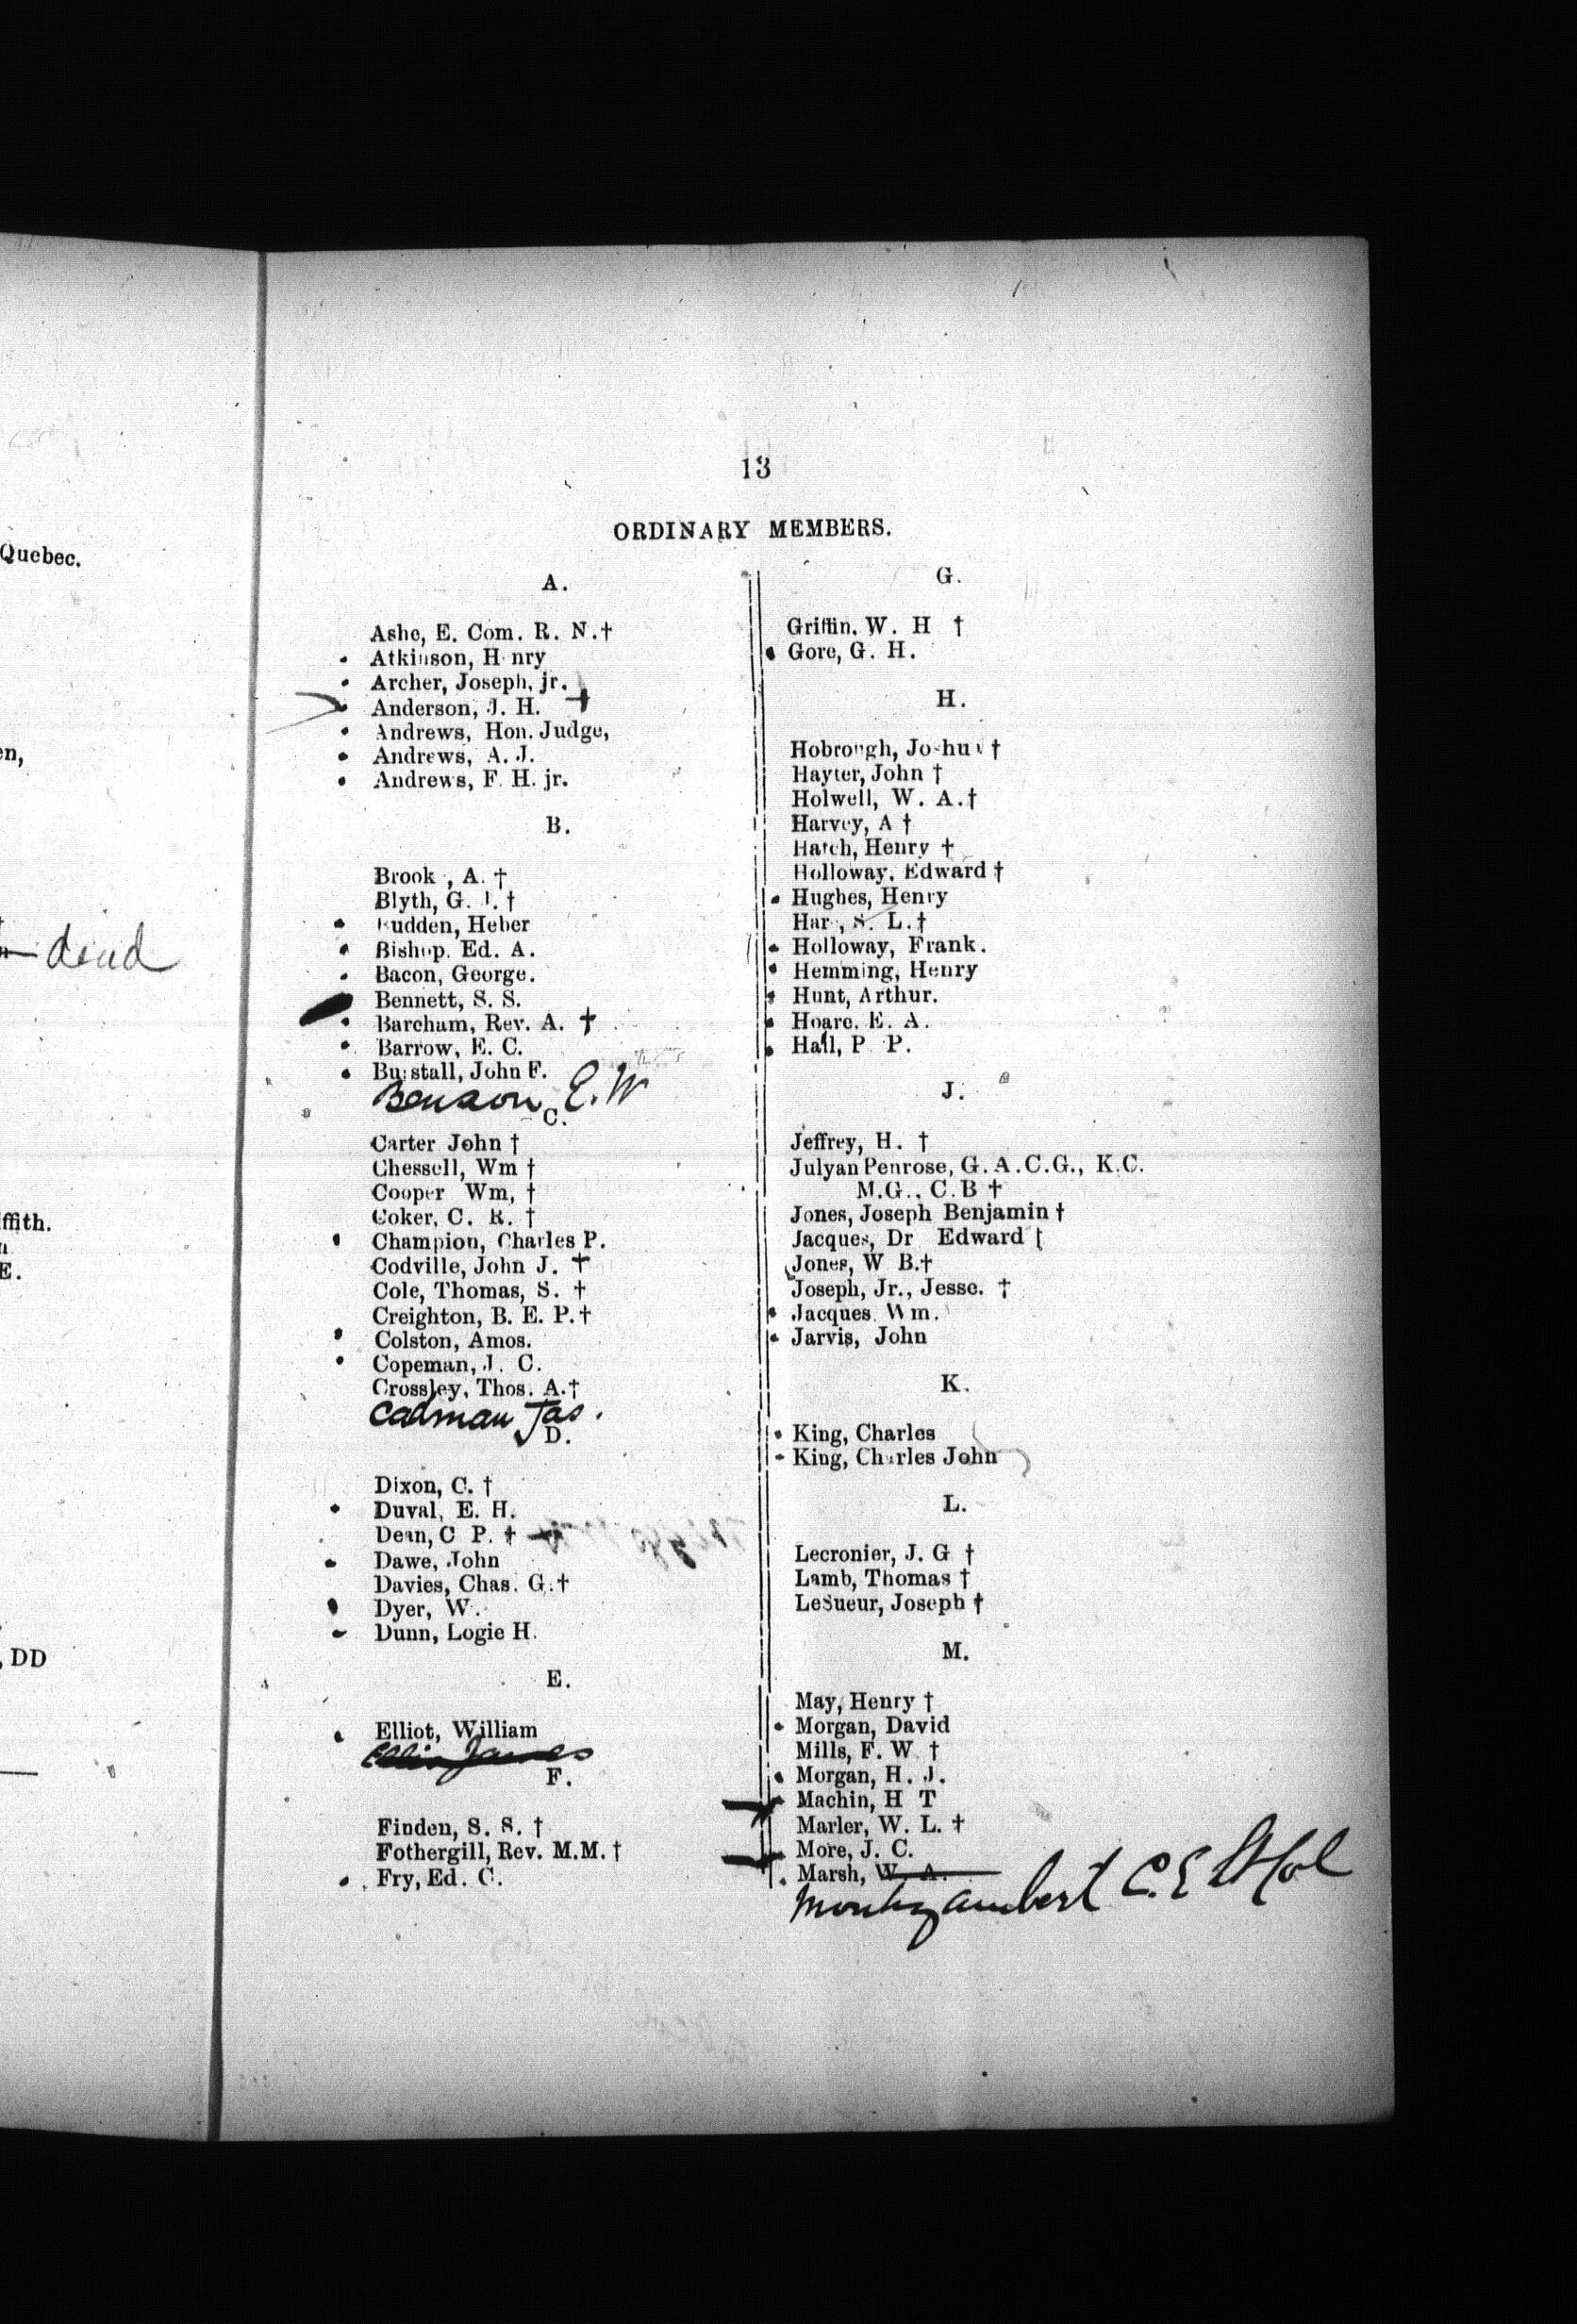 Quebec.
en,
dead
ffith.
E.
, DD
13
ORDINARY MEMBERS.
A.
Ashe, E. Com. R. N.†
• Atkinson, H nry
• Archer, Joseph, jr.
• Anderson, J. H. †
• Andrews, Hon. Judge,
• Andrews, A. J.
• Andrews, F. H. jr.
B.
Brook , A. †
Blyth, G. †
• udden, Heber
• Bishop, Ed. A.
• Bacon, George.
Bennett, S. S.
• Barcham, Rev. A. †
• Barrow, E. C.
• Burstall, John F.
Benson, E. W
C.
Carter John †
Chessell, Wm †
Cooper Wm, †
Coker, C. R. †
• Champion, Charles P.
Codville, John J. †
Cole, Thomas, S. †
Creighton, B. E. P. †
• Colston, Amos.
• Copeman, J. C.
Crossley, Thos. A.†
Cadman Jas.
D.
Dixon, C. †
• Duval, E. H.
Dean, C P. †
• Dawe, John
Davies, Chas. G.†
• Dyer, W.
• Dunn, Logie H.
E.
• Elliot, William
James
F.
Finden, S. S. †
Fothergill, Rev. M.M. †
• Fry, Ed. C.
G.
Griffin. W. H †
• Gore, G. H.
H.
Hobrough, Jo-hu †
Hayter, John †
Holwell, W. A.†
Harvey, A †
Hatch, Henry †
Holloway, Edward †
• Hughes, Henry
Har , S. L.†
• Holloway, Frank.
• Hemming, Henry
• Hunt, Arthur.
• Hoare. E. A.
• Hall, P P.
J.
Jeffrey, H. †
Julyan Penrose, G.A.C.G., K.C.
M.G., C.B †
Jones, Joseph Benjamin †
Jacques, Dr Edward †
Jones, W B.†
Joseph, Jr., Jesse. †
• Jacques Wm.
• Jarvis, John
K.
• King, Charles
• King, Charles John
L.
Lecronier, J. G †
Lamb, Thomas †
LeSueur, Joseph †
M.
May, Henry †
• Morgan, David
Mills, F. W. †
• Morgan, H. J.
Machin, H T
Marler, W. L. †
More, J. C.
• Marsh, W. A.
Montizambert C. E Lt Col